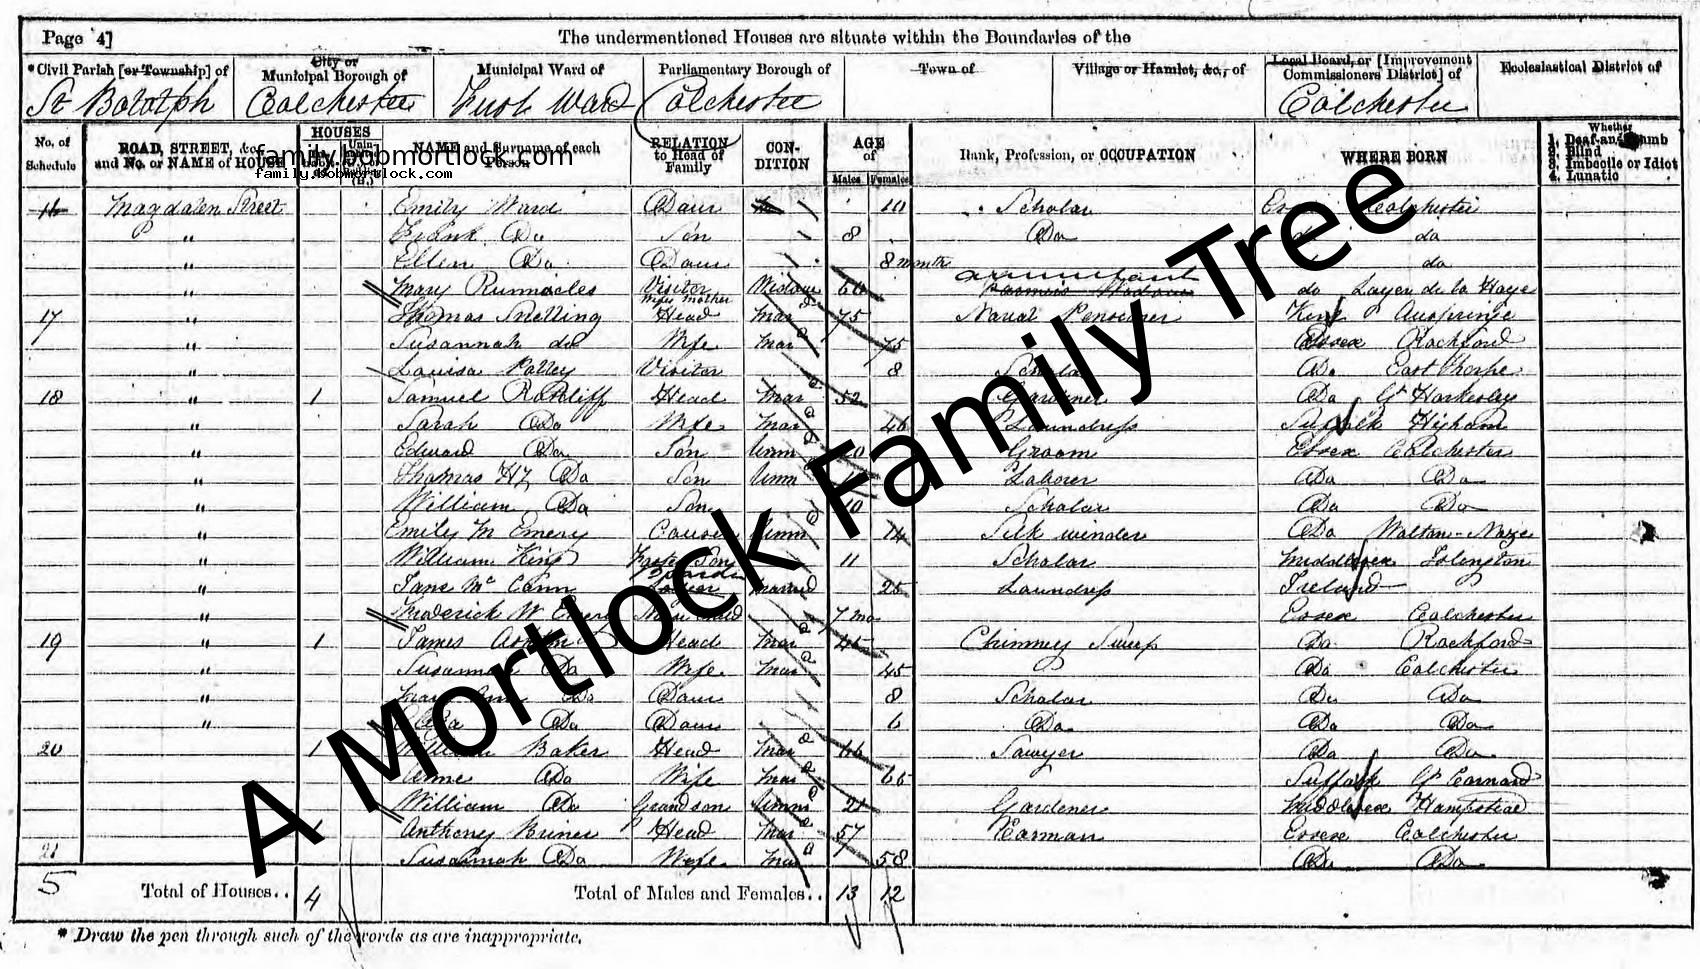 Page 4] The undermentioned Houses are situate within the Boundaries of the
*Civil Parish [or Township] of City or Municipal Borough of Municipal Ward of Parliamentary Borough of Town of Village or Hamlet, &c., of Local Board, or [Improvement Commissioners District] of Ecclesiastical District of
St Botolph Colchester Ward Colchester Colchester
No. of Schedule ROAD, STREET, &c., and No. or NAME of HOUSE HOUSES NAME and Surname of each Person RELATION to Head of Family CONDITION AGE of Males Females Rank, Profession, or OCCUPATION WHERE BORN Whether 1. Deaf-and-Dumb 2. Blind 3. Imbecile or Idiot 4. Lunatic
family.bobmortlock.com
family.bobmortlock.com
16 Magdalen Street Emily Ward Daur 10 Scholar Colchester
" Frank Do Son 8 Do do do
" Ellen Do Daur 8 months do
" Mary Runnacles Visitor wifes mother Widow annuitant do Layer de la Haye
17 " Thomas Snelling Head Mar 75 Naval Pensioner Kent Ospringe
" Susannah do Wife Mar 75 Essex Rochford
" Louisa Polley Visitor 8 Scholar Do East Thorpe
18 " 1 Samuel Ratcliff Head Mar 52 Gardener Do Gt Horkesley
" Sarah Do Wife Mar 46 Laundress Suffolk Higham
" Edward Do Son Unm 20 Groom Essex Colchester
" Thomas Hy Do Son Unm Laborer Do Do
" William Do Son 10 Scholar Do Do
" Emily M Emery Unm 14 Silk winder Do Walton-Naze
" William King Son 11 Scholar Middlesex Islington
" Jane Mc Cann married 25 Laundress Ireland
" Frederick W Emery Child 7 mo Essex Colchester
19 " 1 James Head Mar 45 Chimney Sweep Do Rochford
" Susannah Do Wife Mar 45 Do Colchester
" Mary Ann Do Daur 8 Scholar Do Do
" Do Daur 6 Do Do Do
20 1 William Baker Head Mar 66 Sawyer Do Do
Anne Do Wife Mar 65 Suffolk Gt Cornard
William Do Grandson Unm 21 Gardener Middlesex Hampstead
21 1 Anthony Head Mar 57 Carman Essex Colchester
Susannah Do Wife Mar 58 Do Do
5 Total of Houses.. 4 Total of Males and Females.. 13 12
* Draw the pen through such of the words as are inappropriate.
A Mortlock Family Tree